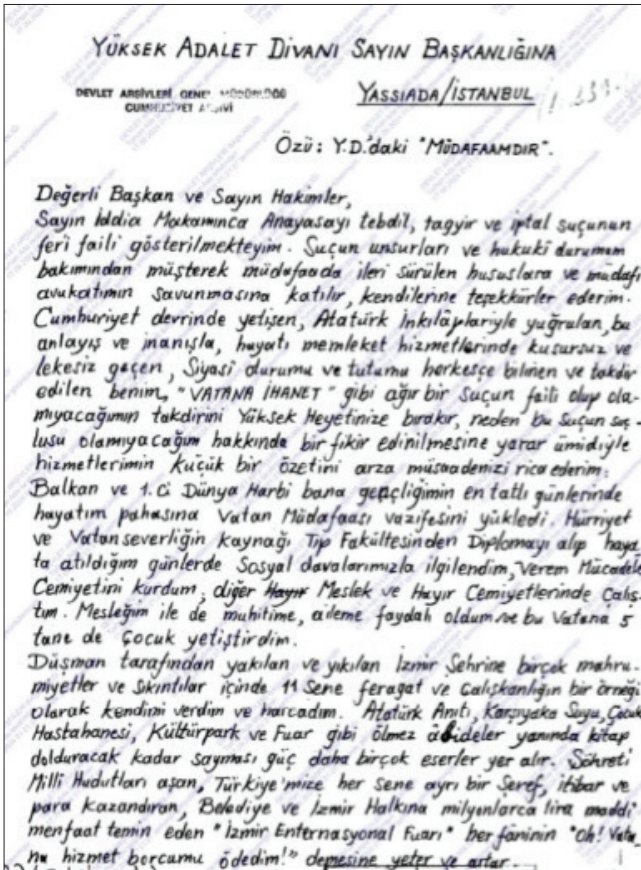 YÜKSEK ADALET DİVANI SAYIN BAŞKANLIĞINA
DEVLET ARŞİVLERİ GENEL MÜDÜRLÜĞÜ
CUMHURİYET ARŞİVİ
YASSIADA/İSTANBUL
Özü: Y.D.'daki "MÜDAFAAMDIR".
Değerli Başkan ve Sayın Hakimler,
Sayın İddia Makamınca Anayasayı tebdil, tagyir ve iptal suçunun
feri faili gösterilmekteyim. Suçun unsurları ve hukuki durumum
bakımından müşterek müdafaada ileri sürülen hususlara ve müdafi
avukatımın savunmasına katılır, kendilerine teşekkürler ederim.
Cumhuriyet devrinde yetişen, Atatürk İnkılâplariyle yuğrulan, bu
anlayış ve inanışla, hayatı memleket hizmetlerinde kusursuz ve
lekesiz geçen, Siyasî durumu ve tutumu herkesçe bilinen ve takdir
edilen benim, "VATANA İHANET" gibi ağır bir suçun faili olup ola-
mıyacağımın takdirini Yüksek Heyetinize bırakır, neden bu Suçun suç-
lusu olamıyacağım hakkında bir fikir edinilmesine yarar ümidiyle
hizmetlerimin küçük bir özetini arza müsaadenizi rica ederim:
Balkan ve 1.Ci Dünya Harbi bana gençliğimin en tatlı günlerinde
hayatım pahasına Vatan Müdafaası vazifesini yükledi. Hürriyet
ve Vatanseverliğin kaynağı Tıp Fakültesinden Diplomayı alıp haya-
ta atıldığım günlerde Sosyal davalarımızla ilgilendim, Verem Mücadele
Cemiyetini kurdum, diğer Hayır Meslek ve Hayır Cemiyetlerinde Çalış-
tım. Mesleğim ile de muhitime, aileme faydalı oldum ve bu Vatana 5
tane de Çocuk yetiştirdim.
Düşman tarafından yakılan ve yıkılan İzmir Şehrine birçok mahru-
miyetler ve sıkıntılar içinde 11 Sene feragat ve Çalışkanlığın bir örneği
olarak kendimi verdim ve harcadım. Atatürk Anıtı, Karşıyaka Suyu, Çocuk
Hastahanesi, Kültürpark ve Fuar gibi ölmez abideler yanında kitap
dolduracak kadar sayması güç daha birçok eserler yer alır. Şöhreti
Milli Hudutları aşan, Türkiye'mize her sene ayrı bir Şeref, itibar ve
para kazandıran, Belediye ve İzmir Halkına milyonlarca lira maddi
menfaat temin eden "İzmir Enternasyonal Fuarı" her fâninin "Oh! Vata-
na hizmet borcumu ödedim!" demesine yeter ve artar.